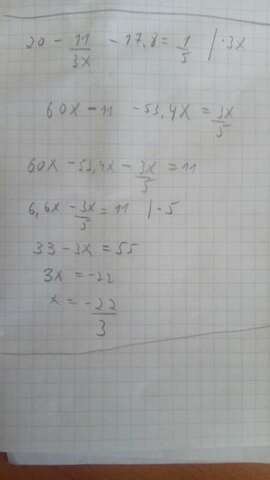 20 - 11/3x - 17,8 = 1/5 | ·3x
60x - 11 - 53,4x = 3x/5
60x - 53,4x - 3x/5 = 11
6,6x - 3x/5 = 11 | ·5
33 - 3x = 55
3x = -22
x = -22/3